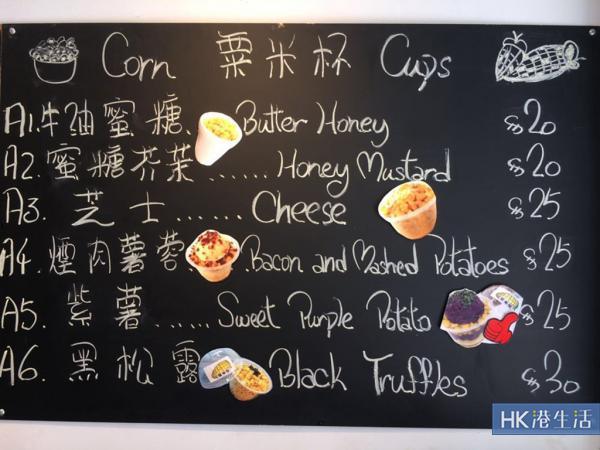 Corn 粟米杯 Cups
A1. 牛油蜜糖. Butter Honey $20
A2. 蜜糖芥菜...... Honey Mustard $20
A3. 芝士...... Cheese $25
A4. 煙肉薯蓉. Bacon and Mashed Potatoes $25
A5. 紫薯...... Sweet Purple Potato $25
A6. 黑松露 Black Truffles $30
HK港生活